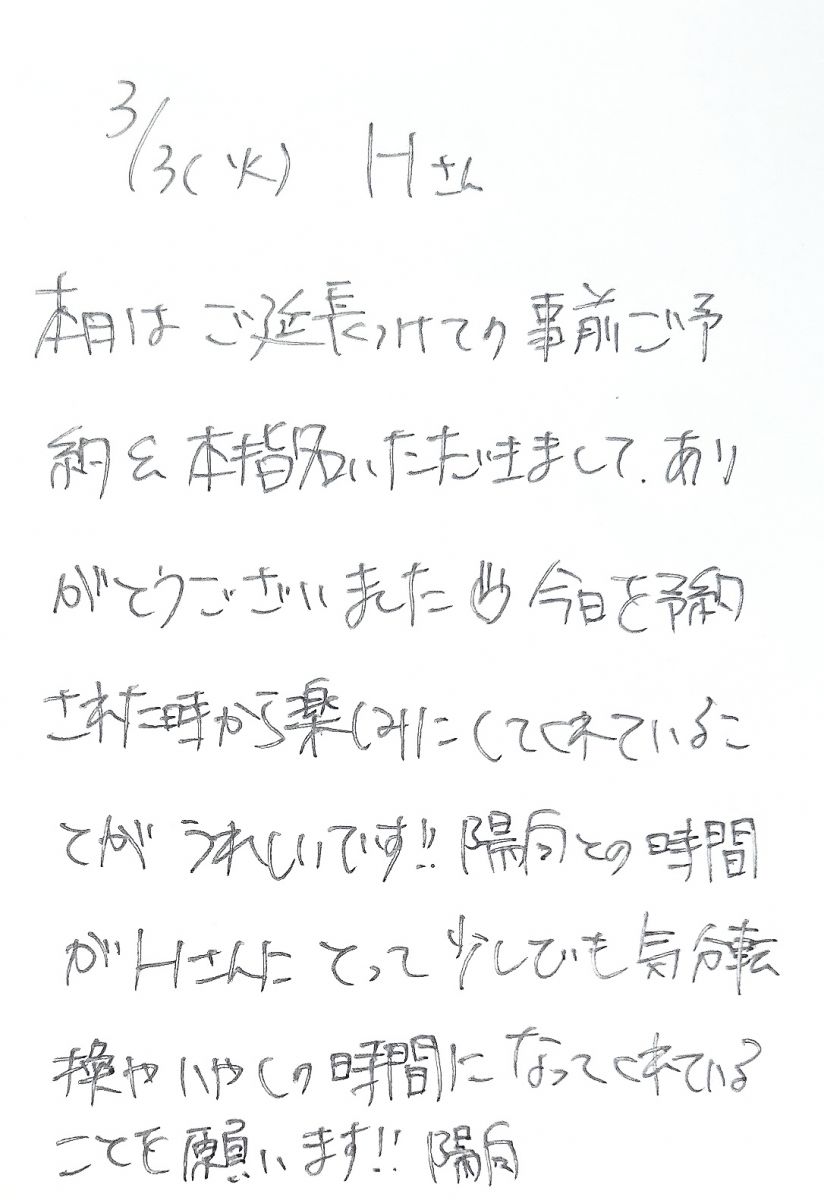 3/3(火) Hさん
本日はご延長つけての事前ご予
約&本指名いただきまして、あり
がとうございました♡今日を予約
された時から楽しみにしてくれているこ
とがうれしいです!!陽向との時間
がHさんにとって少しでも気分転
換やいやしの時間になってくれている
ことを願います!!陽向